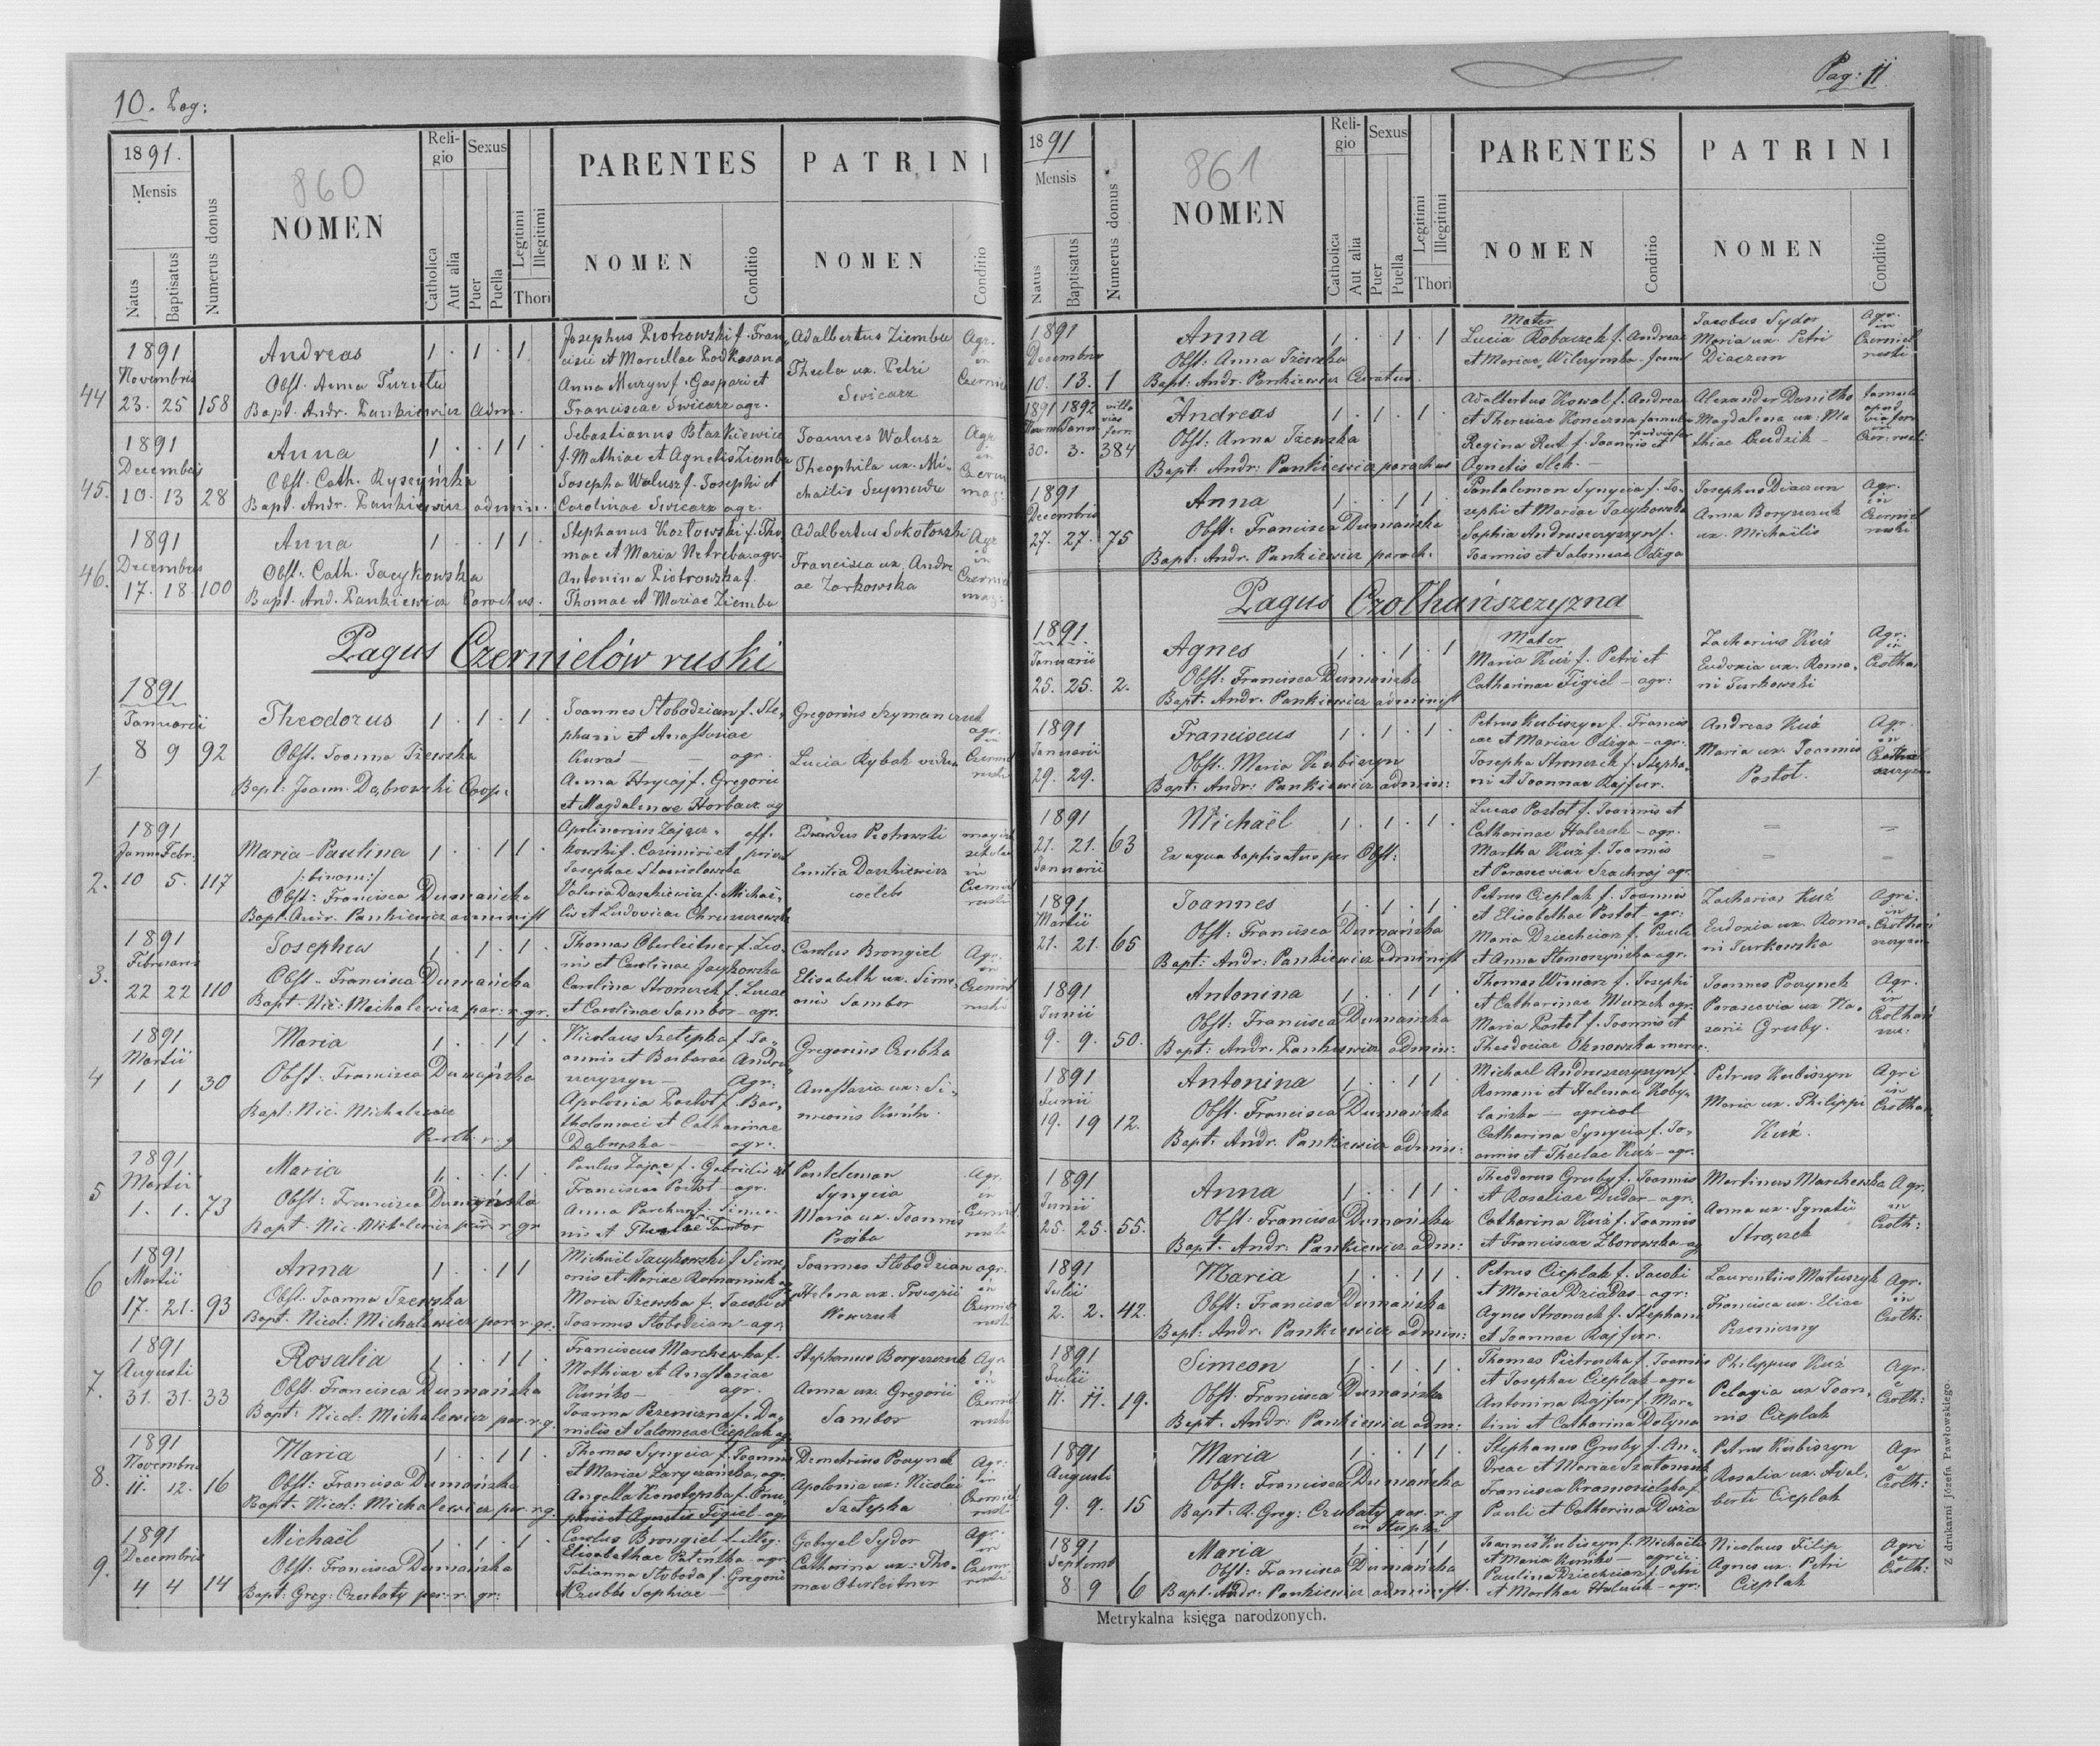 10. Pag:
1891.
Mensis
Natus
Baptisatus
Numerus domus
860
NOMEN
Religio
Catholica
Aut alia
Sexus
Puer
Puella
Legitimi
Illegitimi
Thori
PARENTES
NOMEN
Conditio
PATRINI
NOMEN
Conditio
44
1891
Novembris
23. 25 158
Andreas
Obst. Anna Turulu
Bapt. Andr. Pankiewicz Adm.
1 . 1 . 1
Josephus Piotrowski f. Fran
cisci et Marcellae Podkasana
Anna Mazyw f. Gaspari et
Franciscae Swicarz agr.
Adalbertus Ziemba
Thecla ux. Petri
Swicarz
Agr.
in
45.
1891
Decembris
10. 13 28
Anna
Obst. Cath. Ryszyńska
Bapt. Andr. Pankiewicz admin.
1 . . 1 1
Sebastianus Błażkiewicz
f. Mathiae et Agnetis Ziemba
Josepha Walusz f. Josephi et
Carolinae Swicarz agr.
Joannes Walusz
Theophila ux. Mi-
chaelis Szymudu
Agr
in
Czern
maz.
46.
1891
Decembris
17. 18. 100
Anna
Obst. Cath. Jacykowska
Bapt. And. Pankiewicz Parochus.
1 . . 1 1 .
Stephanus Kozłowski f. Tho
mae et Maria Netreba agr.
Antonina Piotrowska f.
Thomae et Mariae Ziemba
Adalbertus Sokołowski
Francisca ux. Andre
ae Zarkowska
Agr
in
Czerniel
maz.
Pagus Czernielów ruski
1
1891
Januarii
8 9 92
Theodorus
Obst. Joanna Tżewska
Bapt. Joann. Dąbrowski Coop.
1 . 1 . 1 .
Joannes Słobodzian f. Ste-
phani et Anastasiae
Kuraś — agr.
Anna Hrycaj f. Gregorii
et Magdalenae Horbacz ag
Gregorius Szymanczuk
Lucia Rybak vidua
agr.
in
Czerniel
ruski
2.
1891
Janu Febr.
10 5. 117
Maria-Paulina
/:binom:/
Obst: Francisca Dumańska
Bapt. Andr. Pankiewicz administ
1 . . 1 1 .
Apolinarius Zającz- off.
kowski f. Casimiri et privat
Josephae Stanislawska
Valeria Daszkiewicz f. Michaë-
lis et Ludovicae Chruszczewska
Edwardus Piotrowski
Emilia Daszkiewicz
coelebs
in
Czerniel
ruski
3.
1891
Februarii
22 22 110
Josephus
Obst.. Francisca Dumańska
Bapt: Nic: Michalewicz par: r. gr.
1 . 1 . 1 .
Thomas Oberleitner f. Leo-
nis et Carolinae Jacykowska
Carolina Stronczek f. Lucae
et Carolinae Sambor - agr.
Carolus Brongiel
Elisabeth ux. Sime-
onis Sambor
Agr.
in
Czerniel
ruski
4
1891
Martii
1 1 30
Maria
Obst. Francisca Dumańska
Bapt: Nic. Michalewicz
Paroch. r. g
1 . . 1 1 .
Nicolaus Szełepka f. Jo-
annis et Barbarae Andru
szczyszyn — Agr:
Apolonia Postoł f. Bar-
tholomaei et Catharinae
Dąbrowska — agr:
Gregorius Czubka
Anastasia ux: Si-
meonis
5
1891
Martii
1. 1. 73
Maria
Obst: Francisca Dumańska
Bapt. Nic. Michalewicz par: r gr
1 . . 1 1 .
Paulus Zając f. Gabrielis et
Franciscae Postoł - agr.
Anna Parchun f. Simeo-
nis et Theclae Sambor
Pantelemon
Synycia
Maria ux. Joannis
Prośba
Agr.
in
Czerniel
ruski
6
1891
Martii
17. 21. 93
Anna
Obst: Joanna Tżewska
Bapt. Nicol: Michalewicz par. r gr.
1 . . 1 1
Michaël Jacykowski f. Sime
onis et Mariae Romaniuk ag
Maria Tżewska f. Jacobi et
Joannes Słobodzian - agr.
Joannes Słobodzian
Helena ux. Procopii
Wowczuk
agr.
in
Czerniel
ruski
7.
1891
Augusti
31. 31. 33
Rosalia
Obst. Francisca Dumańska
Bapt: Nicol: Michalewicz par. r. g.
1 . . 1 1 .
Franciscus Marchewka f.
Mathiae et Anastasiae
Kuńko — agr.
Joanna Pszeniczna f. Da-
nielis et Salomeae Cieplak ag.
Stephanus Boryszczuk
Anna ux. Gregorii
Sambor
Agr.
in
Czerniel
ruski
8.
1891
Novembris
11. 12. 16
Maria
Obst: Francisca Dumańska
Bapt: Nicol: Michalewicz par. r. g.
1 . . 1 1 .
Thomas Synycia f. Joannis
et Mariae Zaryczańska, agr.
Angella Konotopska f.
et Agnetis Figiel - agr
Demetrius Poczynek
Apolonia ux: Nicolai
Szełepka
Agr:
in
Czerniel
ruski
9.
1891
Decembris
4 4 14
Michaël
Obst: Francisca Dumańska
Bapt: Greg: Czubaty par: r. gr:
1 . 1 . 1 .
Carolus Brongiel f. illeg:
Elisabethae Patentka - agr
Tatianna Słoboda f. Gregorii
et Czubka Sophiae —
Gabryel Sydor
Catharina ux: Tho-
mae Oberleitner
Agr.
in
Czern.
ruski
Pag: 11
1891
Mensis
Natus
Baptisatus
Numerus domus
861
NOMEN
Religio
Catholica
Aut alia
Sexus
Puer
Puella
Legitimi
Illegitimi
Thori
PARENTES
NOMEN
Conditio
PATRINI
NOMEN
Conditio
1891
Decembris
10. 13. 1
Anna
Obst. Anna Tżewska
Bapt: Andr. Pankiewicz Curatus.
1 . . 1 . 1
Mater
Lucia Robaczek f. Andreae
et Mariae Wilczyńska - famul
Jacobus Sydor
Maria ux. Petri
Diaczun
Agr.
in
Czerniel
ruski
1891 1892
30. 3. 384
Andreas
Obst: Anna Tżewska
Bapt: Andr: Pankiewicz parochus
1 . 1 . 1
Adalbertus Kowal f. Andreae
et Theresiae Konieczna
Regina Rut f. Joannis et
Agnetis Slek. —
Alexander Daniłko
Magdalena ux: Ma
thiae Gudzik —
famuli
apud
1891
Decembris
27. 27. 75
Anna
Obst: Francisca Dumańska
Bapt: Andr. Pankiewicz paroch.
1 . . 1 1
Pantalemon Synycia f. Jo-
sephi et Mariae Jacykowska
Sophia Andruszczyszyn f.
Joannis et Salomeae Odzga
Josephus Diaczun
Anna Boryszczuk
ux. Michaëlis
Agr.
in
Czerniel
ruski
Pagus Czołhańszczyzna
1891.
Januarii
25. 25. 2.
Agnes
Obst: Francisca Dumańska
Bapt: Andr. Pankiewicz administ
1 . . 1 . 1
Mater
Maria Kuź f. Petri et
Catharinae Figiel — agr:
Zacharius Kuź
Eudoxia ux. Roma-
ni Turkowski
Agr.
in
Czołhań
1891
Januarii
29. 29.
Franciscus
Obst. Maria Kubiszyn
Bapt: Andr: Pankiewicz admin:
1 . 1 . 1 .
Petrus Kubiszyn f. Francis
cae et Mariae Odzga - agr.
Josepha Stronczek f. Stepha-
ni et Joannae Rajfur.
Andreas Kuź
Maria ux. Joannis
Postoł.
Agr.
in
1891
21. 21. 63
Januarii
Michaël
Ex aqua baptisatus per Obst:
1 . 1 . 1 .
Lucas Postoł f. Joannis et
Catharinae Halczuk - agr.
Martha Kuź f. Joannis
et Parasceviae Szachraj agr.
1891
Martii
21. 21. 65
Joannes
Obst: Francisca Dumańska
Bapt: Andr: Pankiewicz administ
1 . 1 . 1 .
Petrus Cieplak f. Joannis
et Elisabethae Postoł - agr:
Maria Dziechciarz f. Pauli
et Anna Słomoczyńska agr.
Zacharias Kuź
Eudoxia ux. Roma-
ni Turkowska
Agri.
in
Czołhań
szczyzn.
1891
Junii
9. 9. 50.
Antonina
Obst: Francisca Dumańska
Bapt: Andr. Pankiewicz admin:
1 . . 1 1 .
Thomas Winiarz f. Josephi
et Catharinae Murzek agr.
Maria Postoł f. Joannis et
Theodosiae Oknowska
Joannes Poczynek
Parascevia ux. Na-
zarii Gruby.
Agr.
in
Czołhań
1891
Junii
19. 19 12.
Antonina
Obst. Francisca Dumańska
Bapt: Andr. Pankiewicz admin:
1 . . 1 1 .
Michael Andruszczyszyn f.
Romani et Helenae Koby-
lańska — agricol
Catharina Synycia f. Jo-
annis et Theclae Kuź - agr.
Petrus Kubiszyn
Maria ux. Philippi
Kuź.
Agri
in
Czołhań
1891
Junii
25. 25. 55.
Anna
Obst: Francisca Dumańska
Bapt. Andr: Pankiewicz adm:
1 . . 1 1 .
Theodorus Gruby f. Joannis
et Rosaliae Dudar - agr.
Catharina Kuź f. Joannis
et Franciscae Zborowska - ag
Martinus Marchewka
Anna ux. Ignatii
Strączek
Agr.
in
Czołh:
1891
Julii
2. 2. 42.
Maria
Obst: Francisca Dumańska
Bapt: Andr. Pankiewicz admin:
1 . . 1 1 .
Petrus Cieplak f. Jacobi
et Mariae Dziadas - agr:
Agnes Stronczek f. Stephani
et Joannae Rajfur.
Laurentius Matuszyk
Francisca ux. Eliae
Pszeniczny
Agr.
in
Czołh:
1891
Julii
11. 11. 19.
Simeon
Obst: Francisca Dumańska
Bapt. Andr: Pankiewicz adm:
1 . 1 . 1 .
Thomas Pietrocha f. Joannis
et Josephae Cieplak - agr.
Antonina Rajfur f. Mar-
tini et Catharina Dolyna
Philippus Kuź
Pelagia ux Joan-
nis Cieplak
Agr.
Czołh:
1891
Augusti
9. 9. 15
Maria
Obst: Francisca Dumańska
Bapt: R. Greg: Czubaty par. r. g
in Stupki
1 . . 1 1 .
Stephanus Gruby f. An-
dreae et Mariae Szatonuk
Francisca Krasnosielska f.
Pauli et Catharina Duża
Petrus Kubiszyn
Rosalia ux. Adal-
berti Cieplak
Agr
Czołh:
1891
Septemb
8 9 6
Maria
Obst: Francisca Dumańska
Bapt: Andr: Pankiewicz administ.
1 . . 1 1
Joannes Kubiszyn f. Michaëlis
et Maria Kuńko — agric:
Paulina Dziechciarz f. Petri
et Marthae Halczuk - agr:
Nicolaus Filip
Agnes ux. Petri
Cieplak
Agri
Czołh:
Metrykalna księga narodzonych.
Z drukarni Józefa Pawłowskiego.